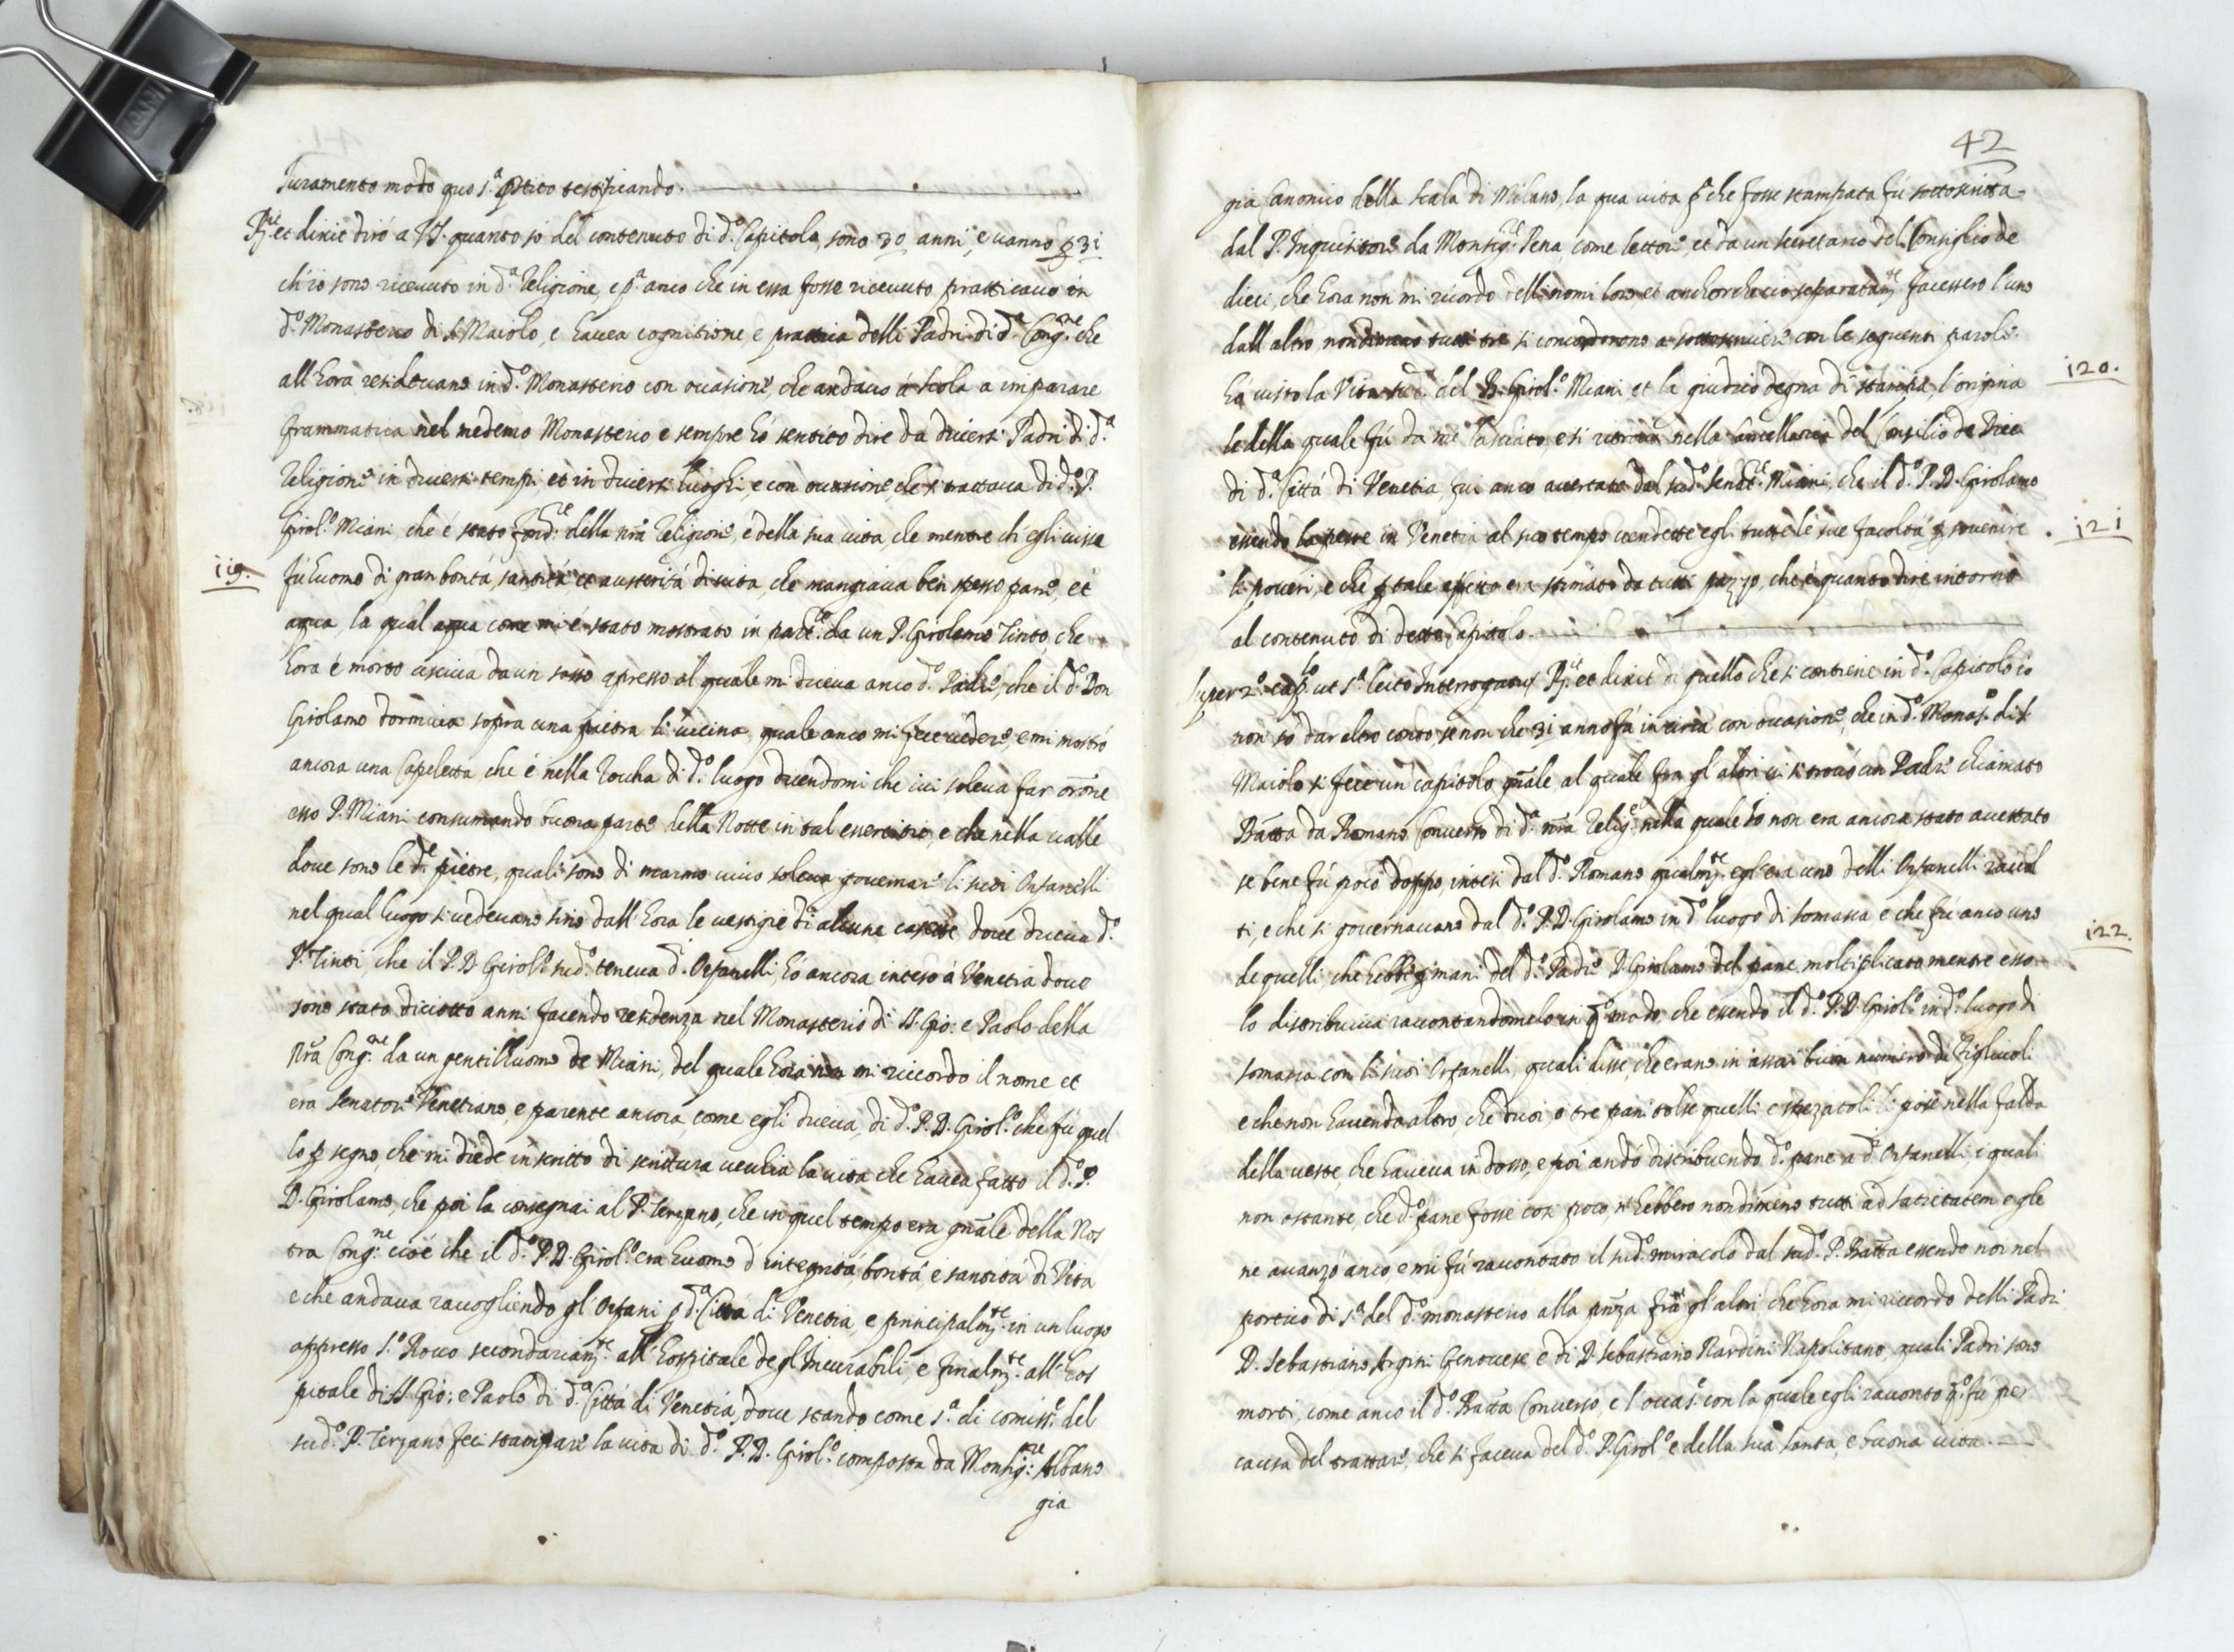 Juramento modo quo s.ª prestito testificando.
R.it et dixit dirò a VS. quanto so del contenuto di d.º Capitolo, sono 30 anni, e vanno p 31
ch'io sono ricevuto in d.ª Religione, e p.ª anco che in essa fosse ricevuto pratticavo in
d.º Monasterio di S. Maiolo, e havea cognitione e prattica delli Padri di d.ª Cong.ne che
all'hora residevano in d.º Monasterio con occasione, che andavo á scola a imparare
Grammatica nel medemo Monasterio e sempre hó sentito dire da diversi Padri di d.ª
Religione in diversi tempi, et in diversi luoghi, e con occasione che si trattava di d.º P.
Girol.º Miani, che é stato fond.re della nra Religione, e della sua vita, che mentre ch'egli visse
119. fú huomo di gran bontá, santitá et austeritá di vita, che mangiava ben spesso pane, et
aqua, la qual aqua come mi é stato mostrato in part.e da un P. Girolamo Tinto, che
hora é morto usciva da un sasso apresso al quale mi diceva anco d.º Padre, che il d.º Don
Girolamo dormiva sopra una pietra li vicina, quale anco mi fece vedere, e mi mostró
ancora una Capeletta che é nella Roccha di d.º luogo dicendomi che ivi soleva far orone
esso P. Miani consumando buona parte della Notte in tal essercitio, e che nella valle
dove sono le d.e pietre, quali sono di marmo vivo soleva governare li suoi Orfanelli
nel qual luogo si vedevano sino dall'hora le vestigie di alcune casette dove diceva d.º
P. Tinti che il P. D. Girol.º sud.º teneva d.i Orfanelli, hó ancora inteso á Venetia dove
sono stato diciotto anni facendo residenza nel Monasterio di SS. Gio: e Paolo della
Nra Cong.ne da un gentilhuomo de Miani, del quale hora non mi riccordo il nome et
era Senatore Venetiano, e parente ancora, come egli diceva, di d.º P. D. Girol.º che fú quel
lo p segno, che mi diede in scritto di scrittura vecchia la vita che havea fatto il d.º P.
D. Girolamo, che poi la consegnai al P. Terzano, che in quel tempo era gnale della Nos
tra Cong.ne cioé che il d.º P. D. Girol.º era huomo d'integritá, bontá, e santitá di Vita
e che andava racogliendo gl'Orfani p d.ª Cittá di Venetia, e principalm.te in un luogo
appresso S.º Rocco secondariam.te all'hospitale degl'Incurabili, e finalm.te all'Hos
pitale di SS. Gio: e Paolo di d.ª Cittá di Venetia, dove stando come s.ª di comiss.e del
sud.º P. Terzano feci stampare la vita di d.º P. D. Girol.º composta da Monsig.re Albano
gia
42
gia Canonico della Scala di Milano, la qua vita p.ª che fosse stampata fú sottoscritta
dal P. Inquisitore da Monsig.re Pena, come lettore, et da un secretario del Consiglio de
dieci, che hora non mi ricordo delli nomi loro et anchorche cio separatam.te facessero l'uno
dall'altro nondimeno tutti tre si concordorono a sottoscrivere con le seguenti parole.
120.
Hó visto la Vita sud.ª del B. Girol.º Miani et la giudico degna di stampa, l'origina
le della quale fú da me lasciato, e si ritrova nella Cancellaria del Consilio de Dieci
di d.ª Cittá di Venetia, fui anco avertato dal sud.º Senat.re Miani, che il d.º P. D. Girolamo
121
essendo la peste in Venetia al suo tempo vendette egli tutte le sue facoltá p sovenire
li poveri, e che p tale effetto era stimato da tutti pazzo, che é quanto dire intorno
al contenuto di detto Capitolo.
Super 2.º cap.lo ut s.ª lecto Interrogatus R.it et dixit di quello che si contiene in d.º Capitolo io
non só dar altro conto se non che 31 anno fá in circa con occasione, che in d.º Monas.º di S.
Maiolo si fece un capitolo gnale, al quale fra gl'altri vi si trovó un Padre chiamato
Batta da Romano Converso di d.ª nra Relig.e nella quale io non era ancora stato accettato
se bene fú poco doppo, intesi dal d.º Romano qualm.te egl'era uno delli Orfanelli racol
ti, e che si governavano dal d.º P. D. Girolamo in d.º luogo di Somasca e che fú anco uno
122.
de quelli, che hebbe p mani del d.º Padre D. Girolamo del pane moltiplicato mentre esso
lo distribuiva racontandomelo in q.º modo, che essendo il d.º P. D. Girol.º in d.º luogo di
Somasca con li suoi Orfanelli, quali disse, che erano in assai buon numero di Figliuoli
e che non havendo altro, che duoi, o tre pani tolse quelli e spezatoli li pose nella falda
della veste, che haveva in dosso, e poi andó distribuendo d.º pane a d.i Orfanelli, i quali
non ostante, che d.º pane fosse cosi poco, n'hebbero nondimeno tutti ad satietatem e gle
ne avanzó anco, e mi fú racontato il sud.º miracolo dal sud.º P. Batta essendo noi nel
portico di s.ª del d.º monasterio alla pnza fra gl'altri che hora mi riccordo delli Padri
D. Sebastiano Argini Genovese e di D. Sebastiano Nardini Napolitano, quali Padri sono
morti, come anco il d.º Batta Converso, e l'occas.e con la quale egli raconto q.º fú per
causa del trattare, che si faceva del d.º P. Girol.º e della sua santa, e buona vita.